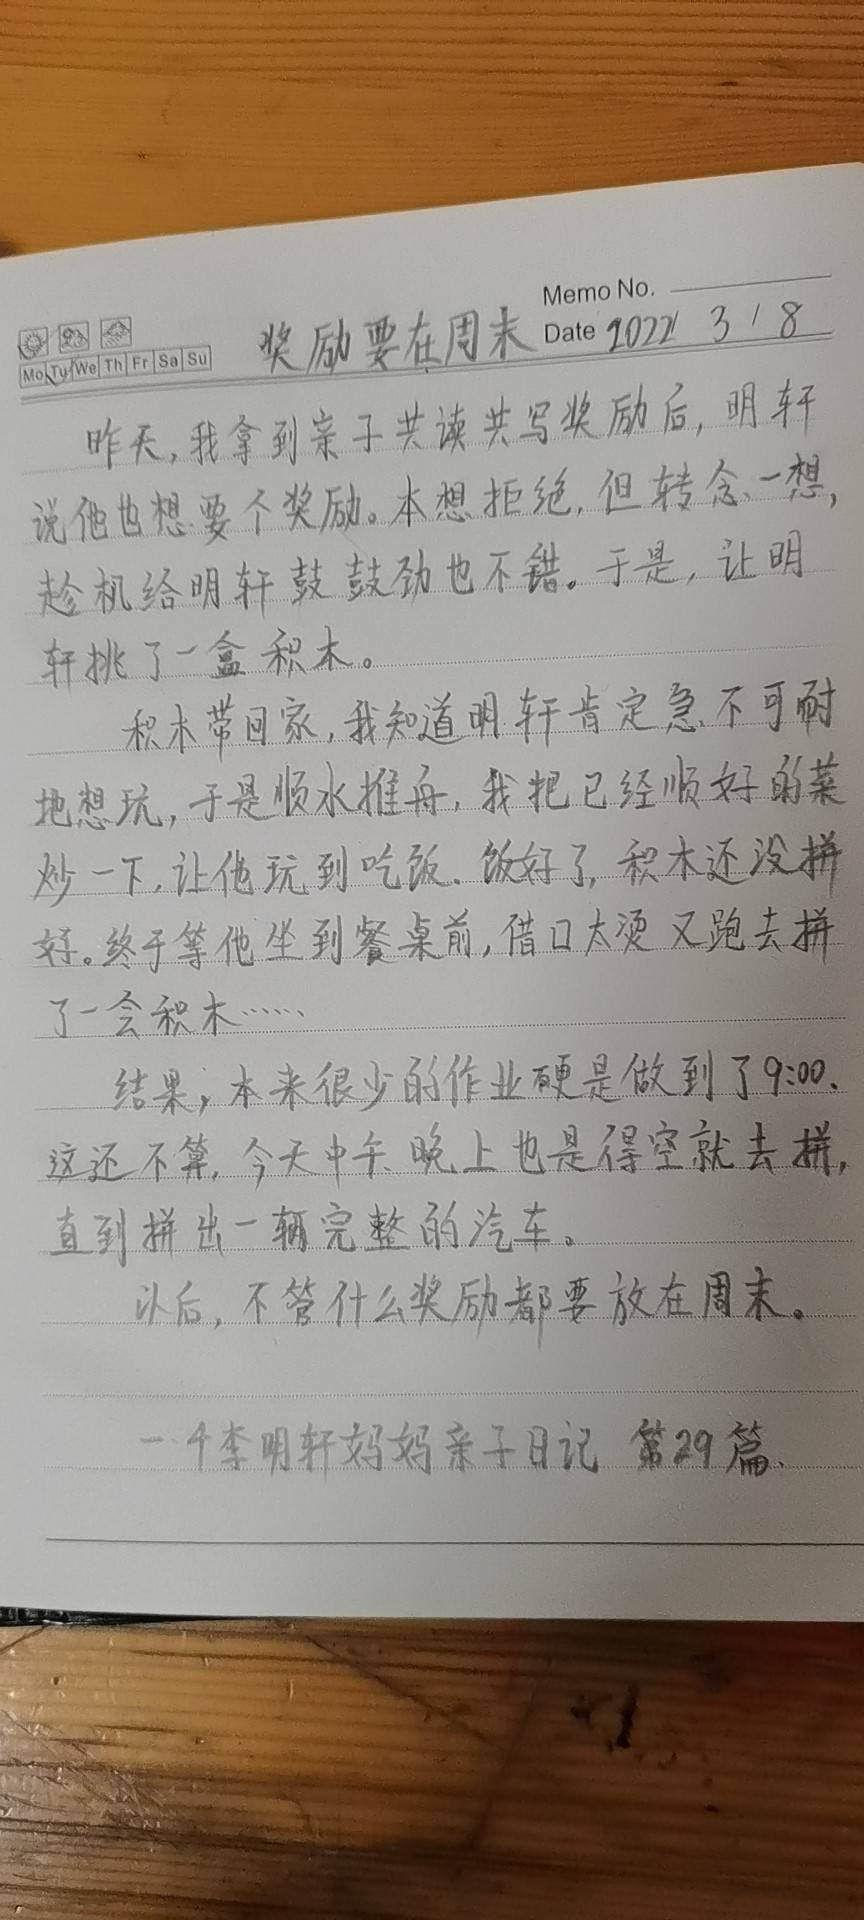 Memo No.
Mo Tu We Th Fr Sa Su
奖励要在周末
Date 2022 / 3 / 8
昨天,我拿到亲子共读共写奖励后,明轩
说他也想要个奖励。本想拒绝,但转念一想,
趁机给明轩鼓鼓劲也不错。于是,让明
轩挑了一盒积木。
积木带回家,我知道明轩肯定急不可耐
地想玩,于是顺水推舟,我把已经顺好的菜
炒一下,让他玩到吃饭。饭好了,积木还没拼
好。终于等他坐到餐桌前,借口太烫又跑去拼
了一会积木……
结果,本来很少的作业硬是做到了9:00、
这还不算,今天中午、晚上也是得空就去拼,
直到拼出一辆完整的汽车。
以后,不管什么奖励都要放在周末。
一4李明轩妈妈亲子日记 第29篇、